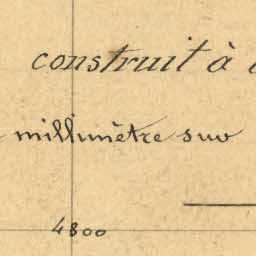 construit à
millimètre sur
4800